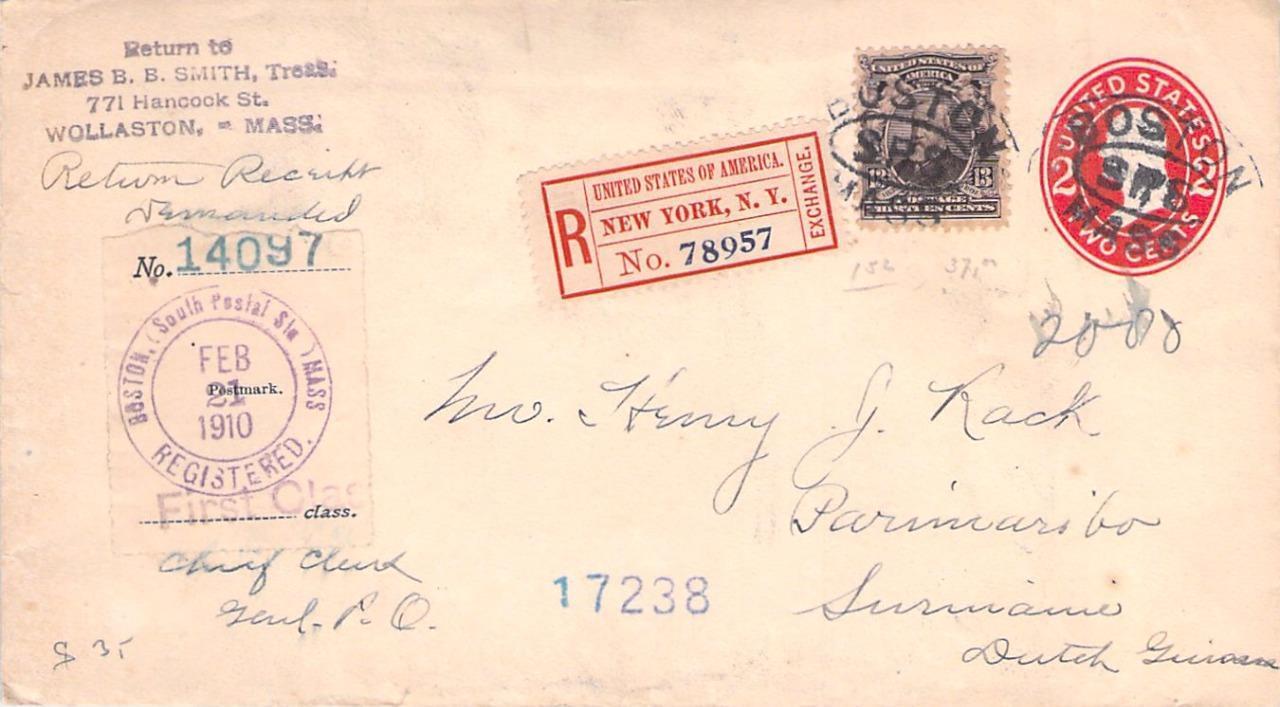 Return to
JAMES B. B. SMITH, Treas.
771 Hancock St.
WOLLASTON, - MASS.
Return Receipt
Demanded
No. 14097
BOSTON, (South Postal Sta.) MASS
FEB
21
1910
Postmark.
REGISTERED.
First Clas
class.
Chief Clerk
Genl. P. O.
R
UNITED STATES OF AMERICA.
NEW YORK, N. Y.
No. 78957
EXCHANGE.
UNITED STATES OF
AMERICA
13 13
CENTS
BOSTON
MASS
UNITED STATES
2 2
TWO CENTS
BOSTON
MASS
Mr. Henry J. Kack
Parimaribo
Suriname
Dutch
17238